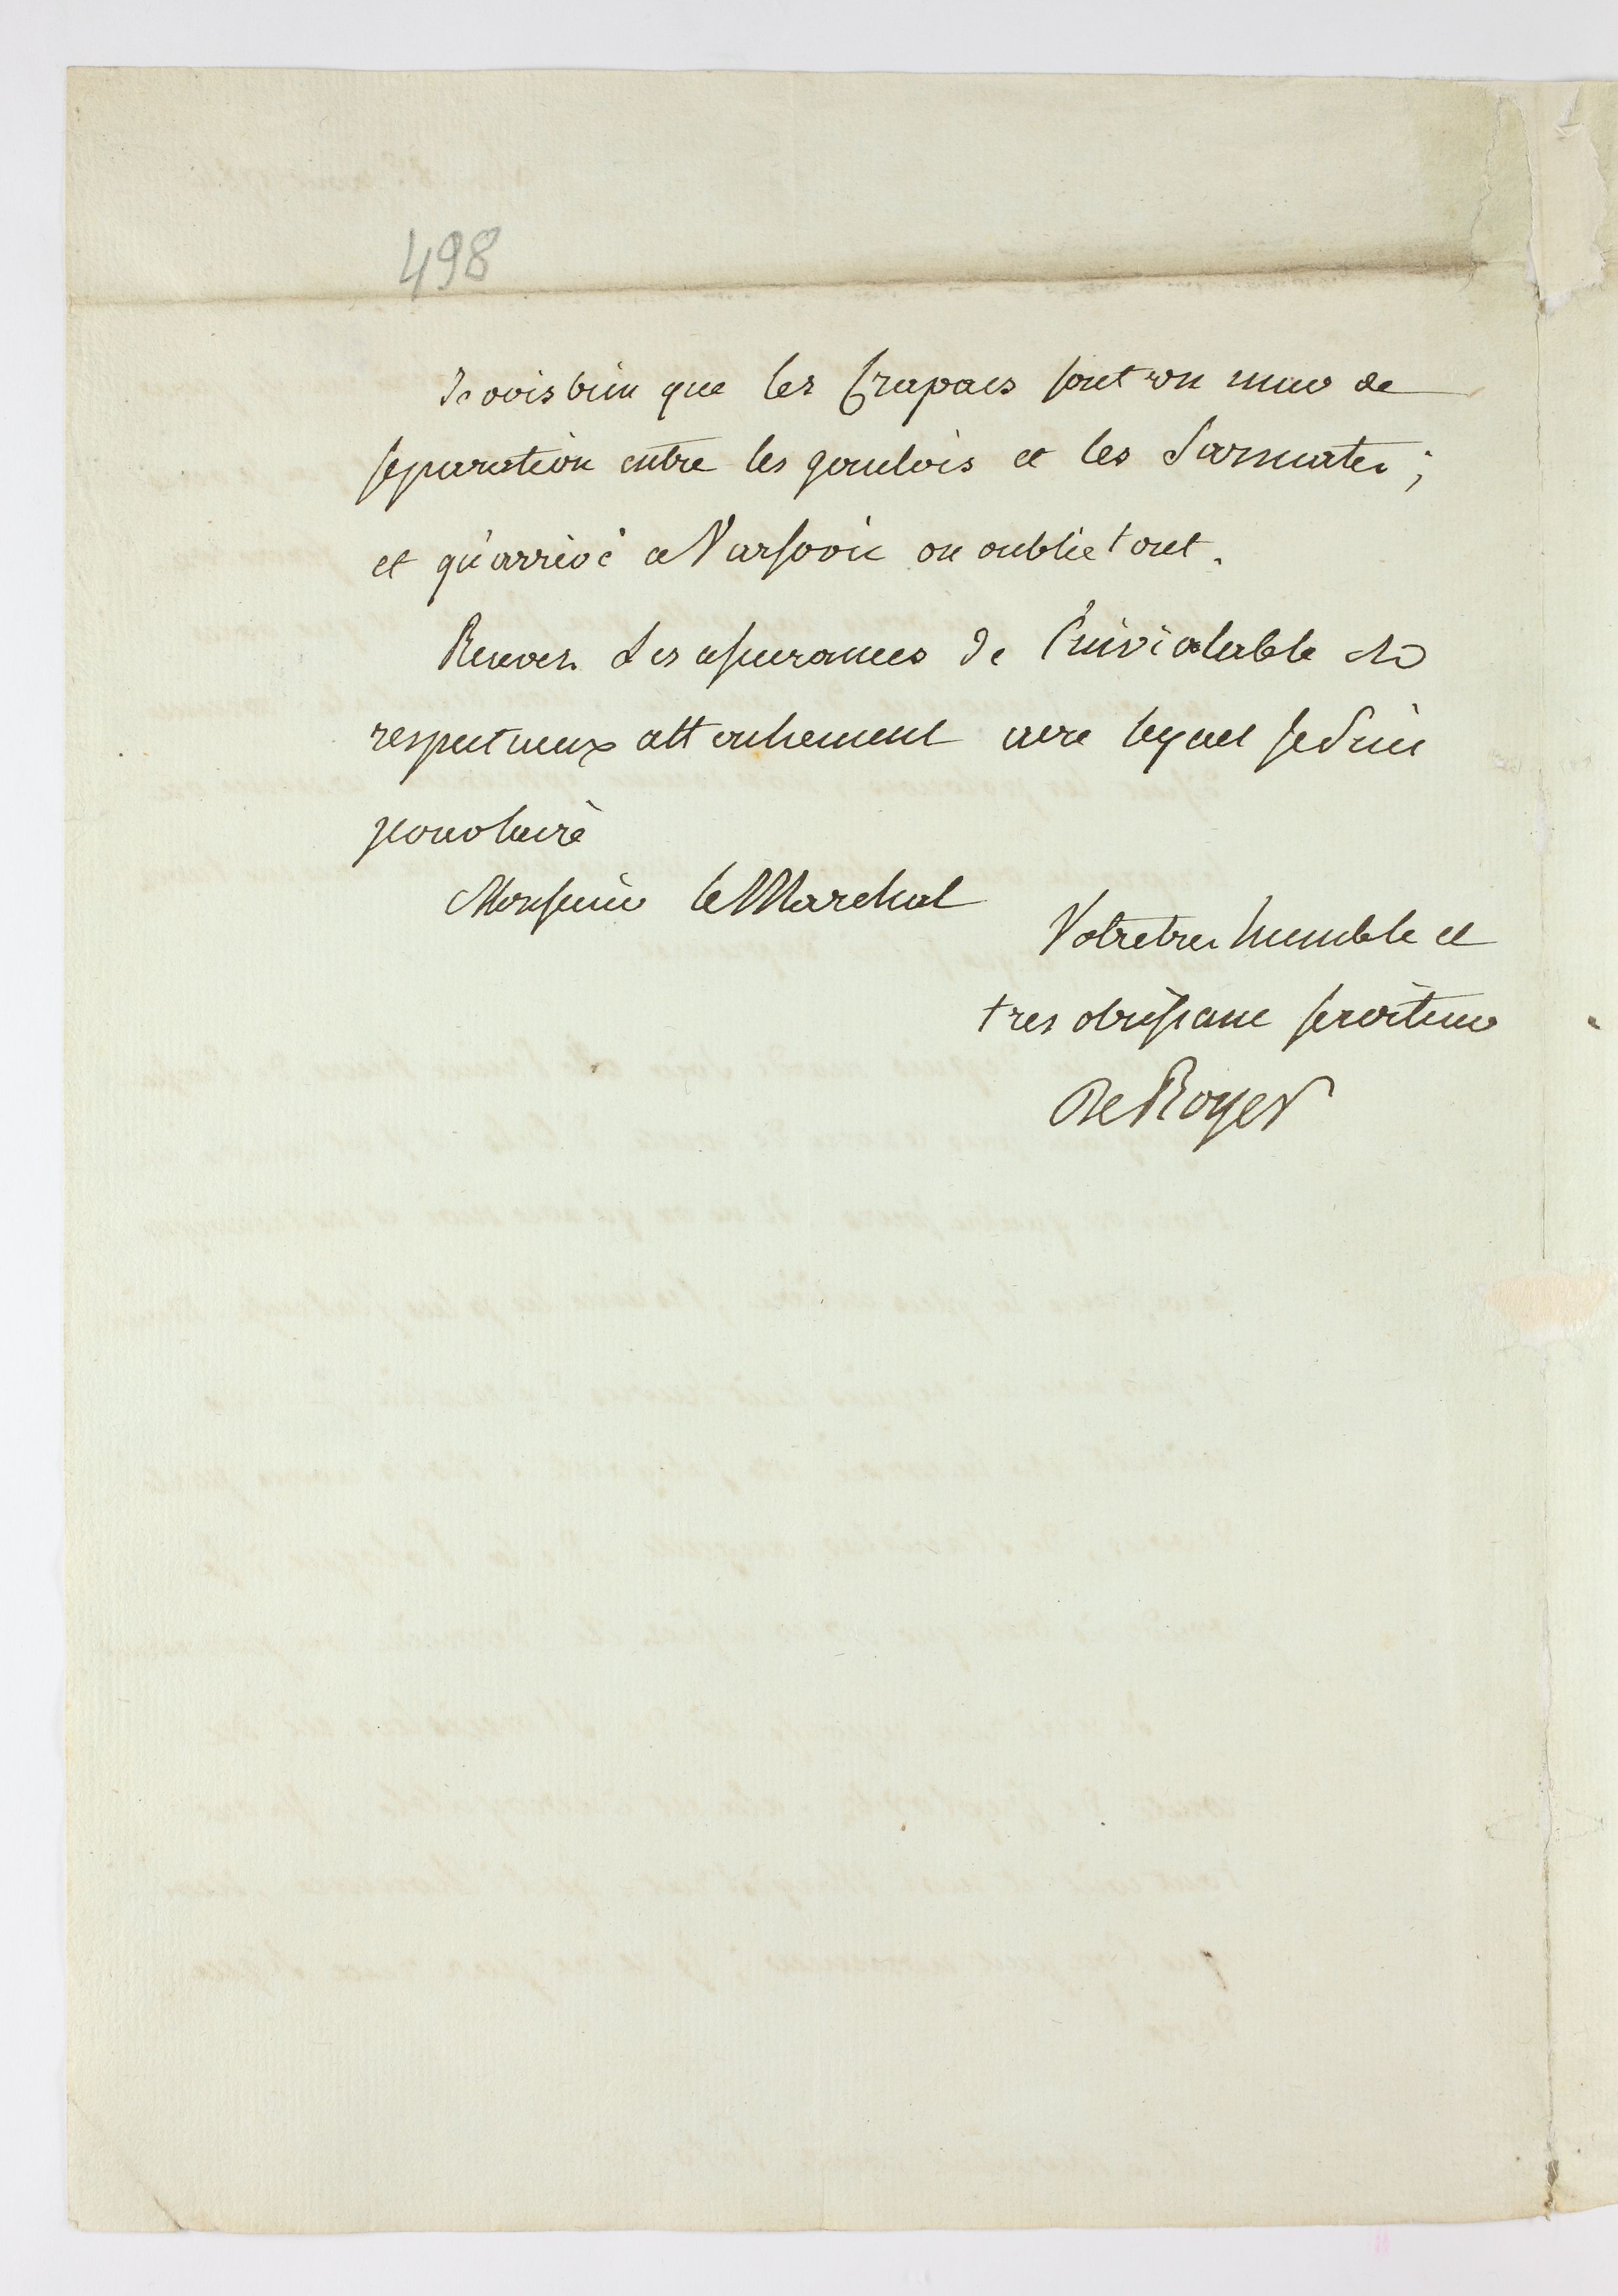 498
Je vois bien que les Crapacs sont un mur de
separation entre les gaulois et les Sarmates;
et qu'arrivé a Varsovie on oublie tout.
Recevez Les assurances de l'inviolable et
respectueux attachement avec lequel je Suis
pour la vie
Monsieur le Marechal
Votre tres humble et
tres obeissant serviteur
De Royer